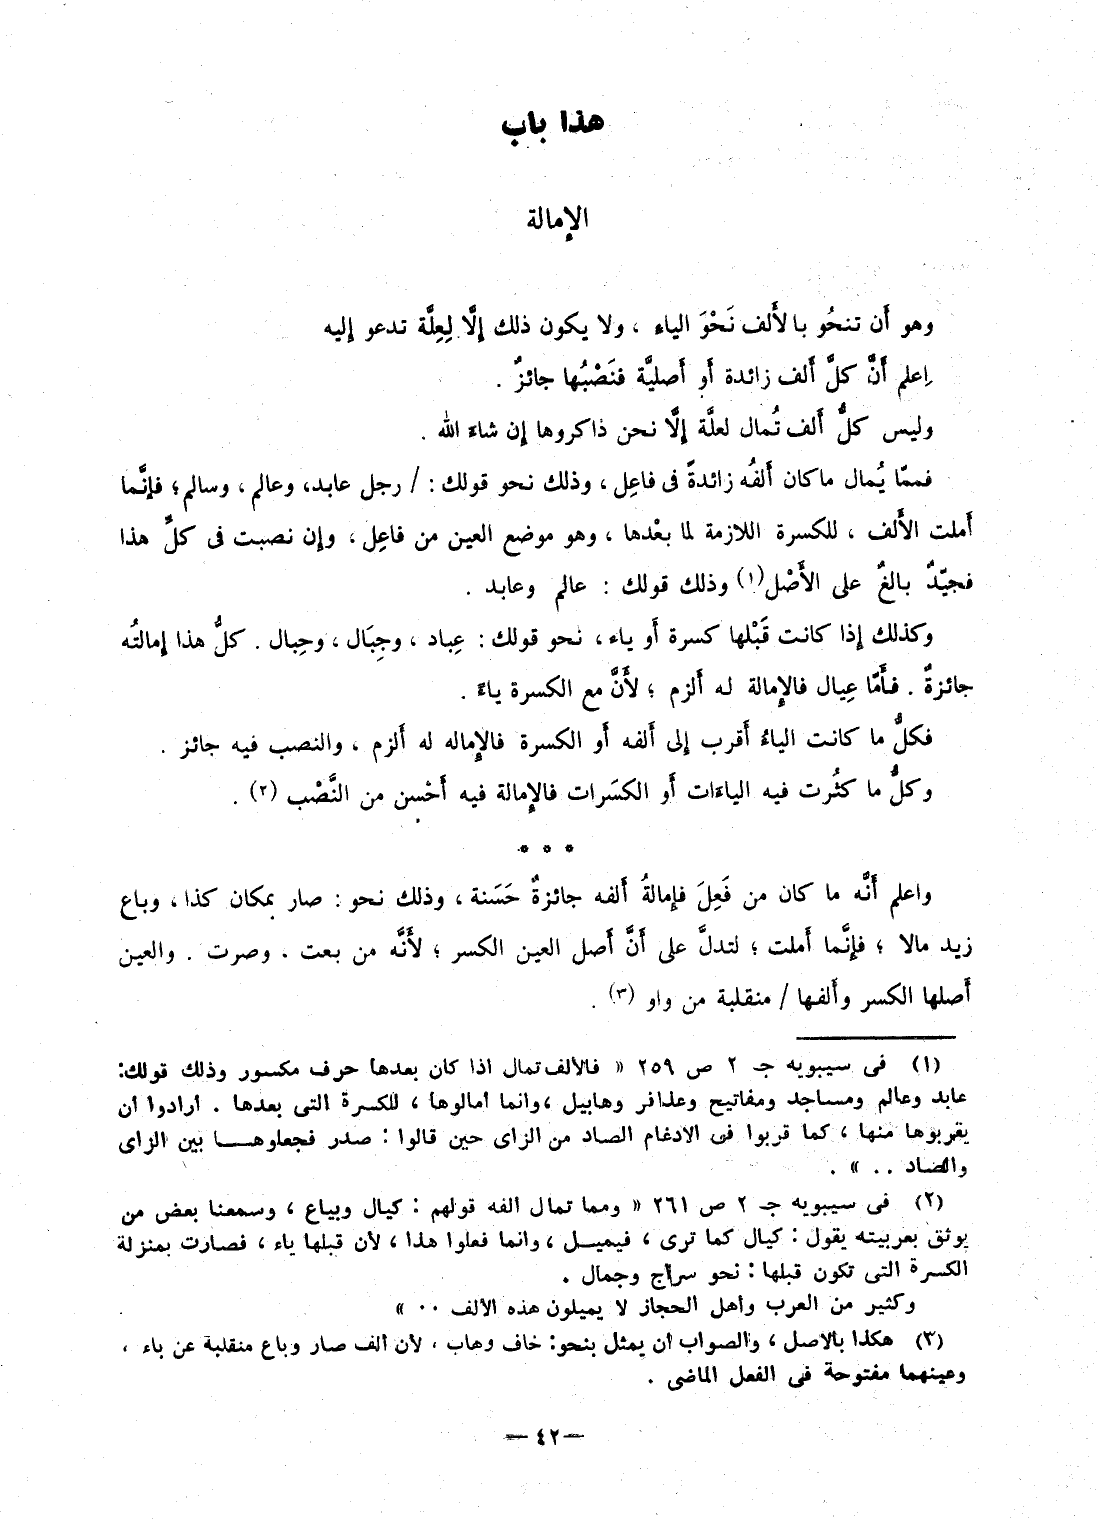 هذا باب
الإمالة
وهو أَن تنحُو بالأَلف نَحْوَ الياءِ ، ولا يكون ذلك إِلَّا لِعِلَّة تدعو إِليه
اِعلم أَنَّ كلَّ أَلف زائدة أَو أَصليَّة فنَصْبُها جائزٌ .
وليس كلُّ أَلف تُمال لعلَّة إِلَّا نحن ذاكروها إِن شاءَ الله .
فممّا يُمال ماكان أَلفُه زائدةً فى فاعِل ، وذلك نحو قولك : / رجل عابد، وعالم ، وسالم؛ فإِنَّما
أَملت الأَلف ، للكسرة اللازمة لما بعْدها ، وهو موضع العين من فاعِل ، وإِن نصبت فى كلِّ هذا
فجيّدٌ بالغٌ على الأَصْل(١) وذلك قولك : عالم وعابد .
وكذلك إِذا كانت قَبْلها كسرة أَو ياء ، نحو قولك : عِباد ، وجِبَال ، وحِبال . كلُّ هذا إِمالتُه
جائزةٌ . فأَمّا عِيال فالإِمالة له أَلزم ؛ لأَنَّ مع الكسرة ياءً .
فكلُّ ما كانت الياءُ أَقرب إِلى أَلفه أَو الكسرة فالإِماله له أَلزم ، والنصب فيه جائز .
وكلُّ ما كثُرت فيه الياءَات أَو الكسَرات فالإِمالة فيه أَحْسن من النَّصْب (٢) .
* * *
واعلم أَنَّه ما كان من فَعِلَ فإِمالةُ أَلفه جائزةٌ حَسَنة ، وذلك نحو : صار بمكان كذا ، وباع
زيد مالا ؛ فإِنَّما أَملت ؛ لتدلَّ على أَنَّ أَصل العين الكسر ؛ لأَنَّه من بعت . وصرت . والعين
أَصلها الكسر وأَلفها / منقلبة من واو (٣) .
(١) فى سيبويه جـ ٢ ص ٢٥٩ « فالألف تمال اذا كان بعدها حرف مكسور وذلك قولك:
عابد وعالم ومساجد ومفاتيح وعذافر وهابيل ،وانما أمالوها ، للكسرة التى بعدها . أرادوا أن
يقربوها منها ، كما قربوا فى الادغام الصاد من الزاى حين قالوا : صدر فجعلوهــا بين الزاى
والصاد .. » .
(٢) فى سيبويه جـ ٢ ص ٢٦١ « ومما تمال ألفه قولهم : كيال وبياع ، وسمعنا بعض من
يوثق بعربيته يقول : كيال كما ترى ، فيميـل ، وانما فعلوا هذا ، لأن قبلها ياء ، فصارت بمنزلة
الكسرة التى تكون قبلها : نحو سراج وجمال .
وكثير من العرب وأهل الحجاز لا يميلون هذه الألف .. »
(٣) هكذا بالأصل ، والصواب أن يمثل بنحو: خاف وهاب ، لأن ألف صار وباع منقلبة عن ياء ،
وعينهما مفتوحة فى الفعل الماضى .
— ٤٢ —